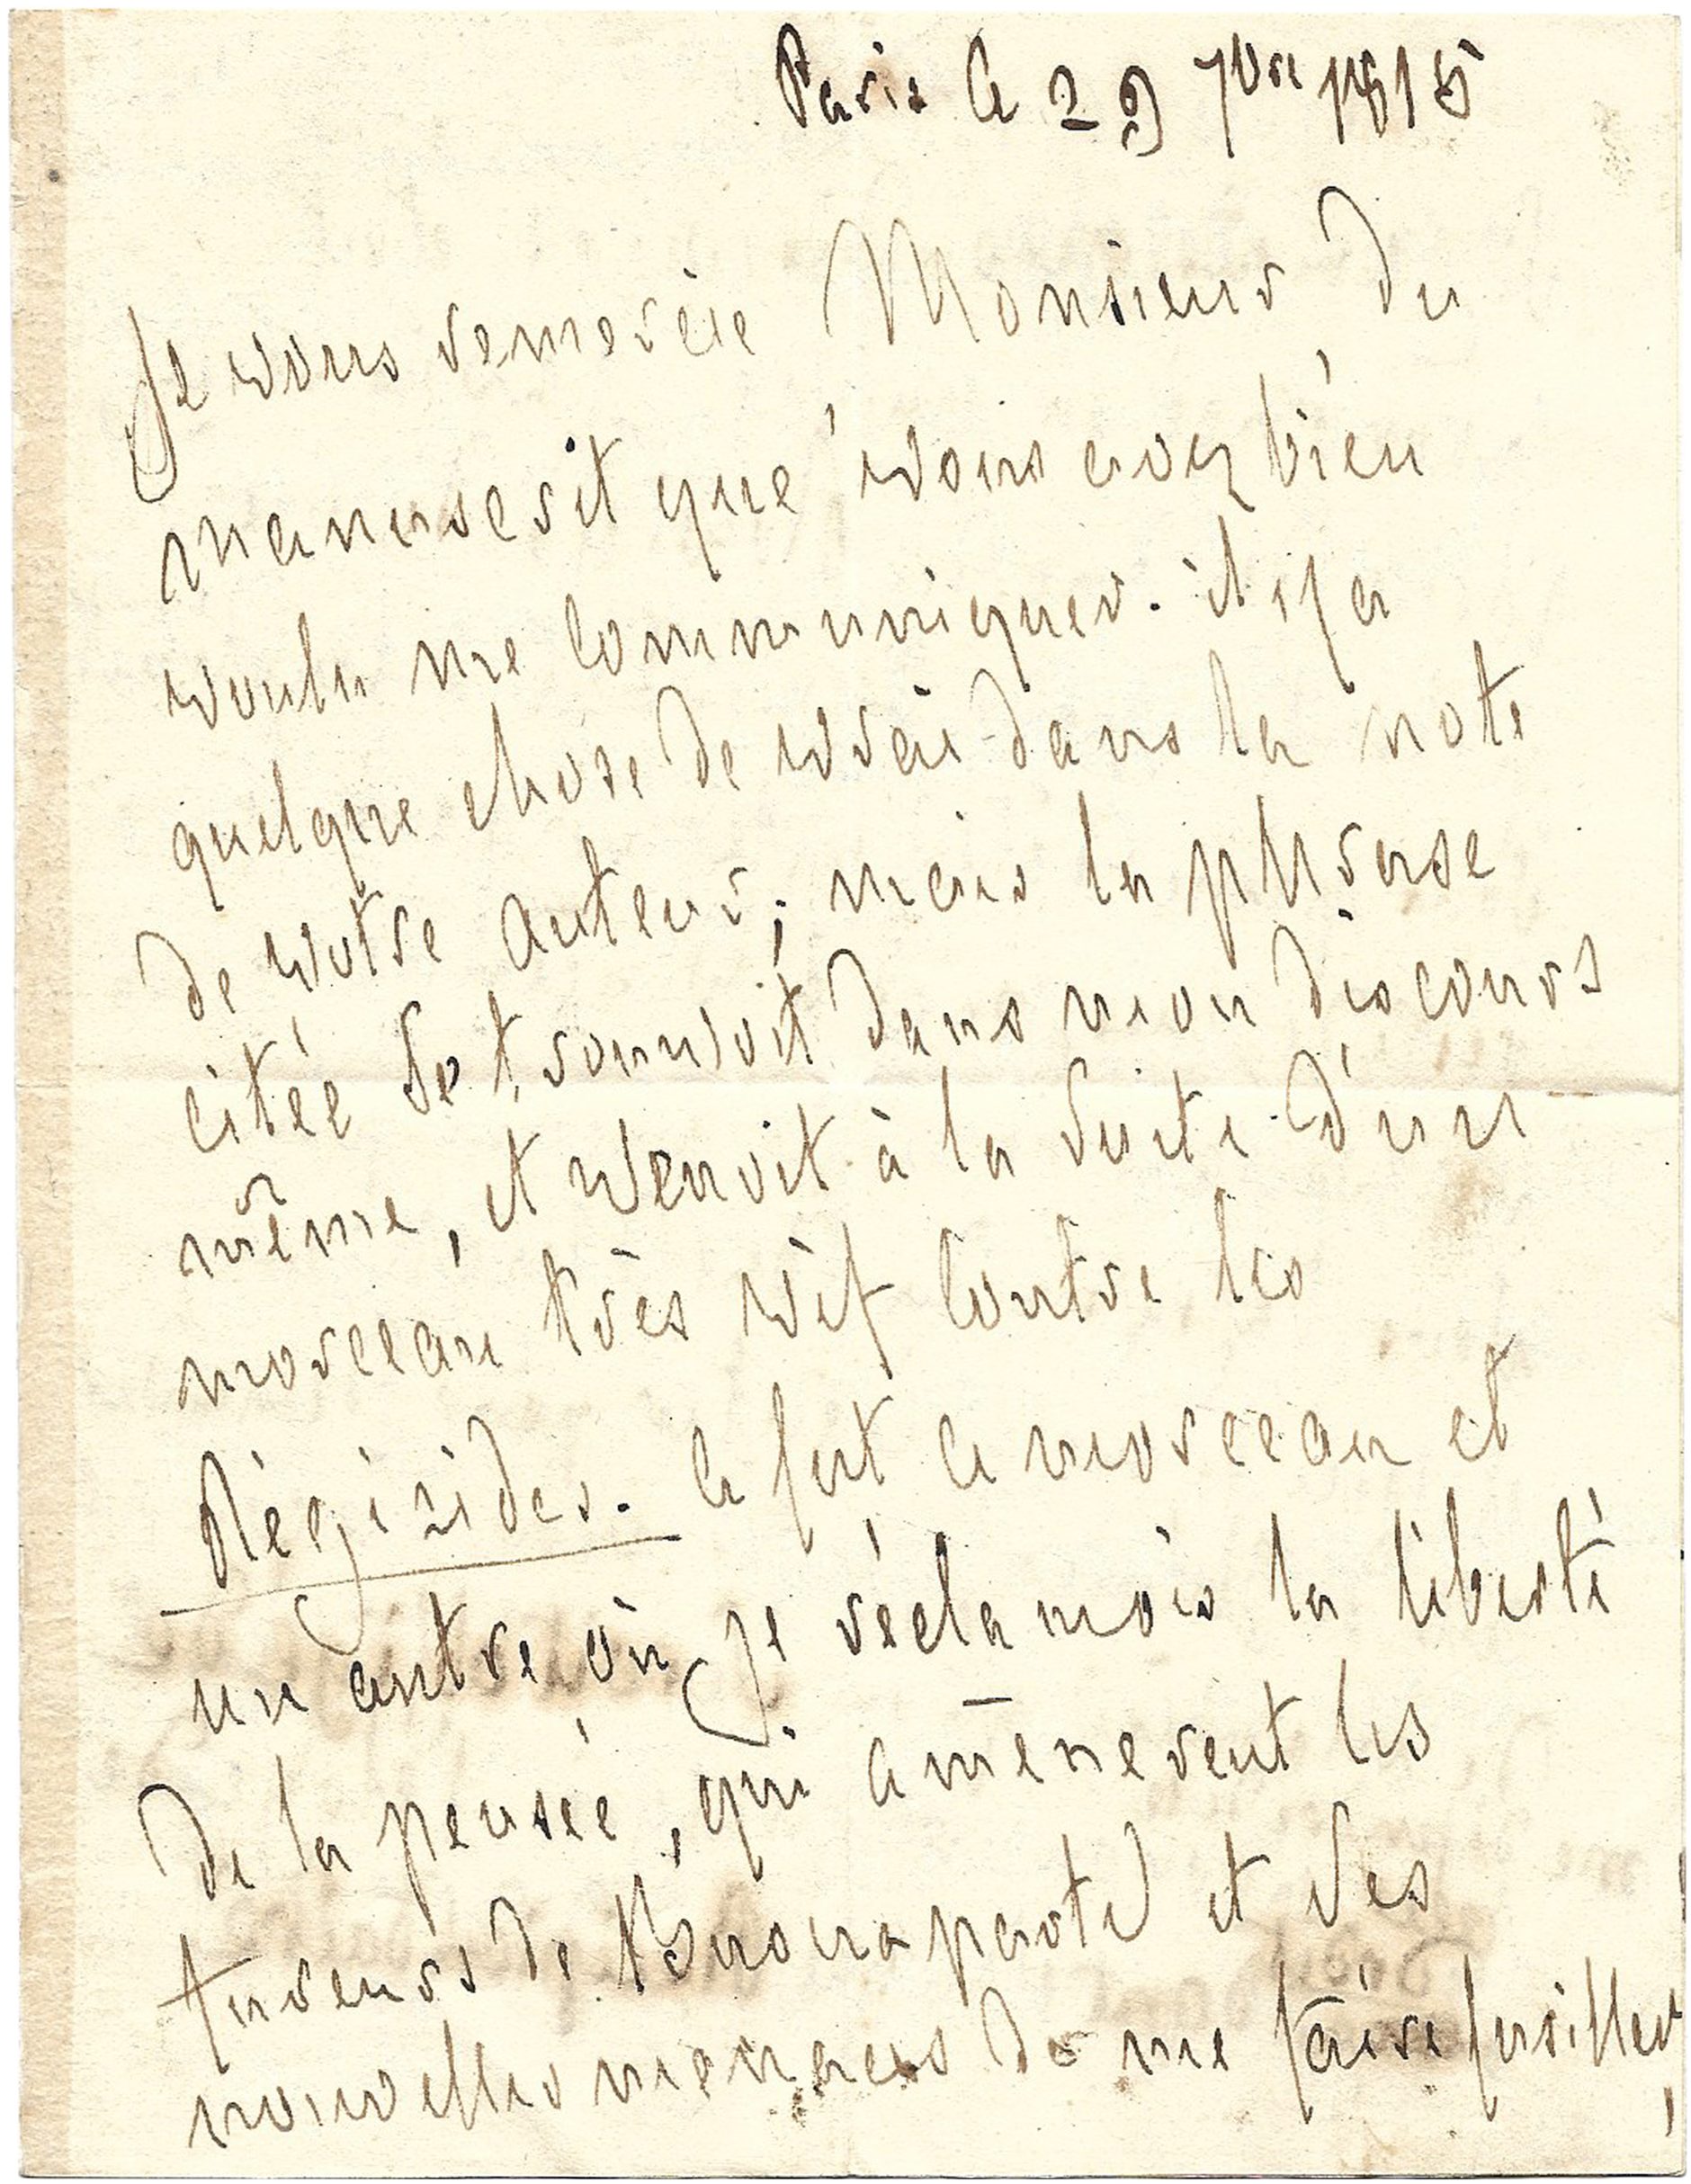 Paris le 29 7bre 1815
Je vous remercie Monsieur du
manuscrit que vous avez bien
voulu me communiquer. il y a
quelque chose de vrai dans la note
de votre auteur; mais la phrase
citée se trouvoit dans mon discours
même, et venoit à la suite d'un
morceau très vif contre les
Régicides. ce fut ce morceau et
un autre, où je réclamois la liberté
de la pensée, qui amenerent les
fureurs de Buonaparte et ses
nouvelles menaces de me faire fusiller,